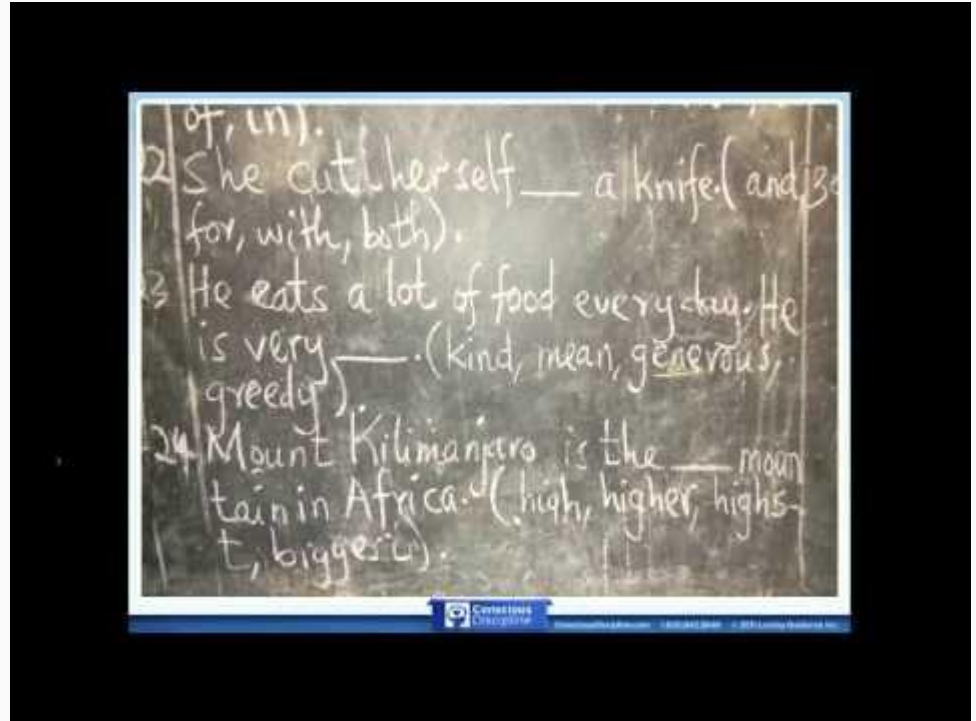 of, in).
22 She cut herself __ a knife. (and,
for, with, both).
23 He eats a lot of food everyday. He
is very ___. (kind, mean, generous,
greedy).
24 Mount Kilimanjaro is the __ moun
tain in Africa. (high, higher, highs-
t,
Conscious
Discipline